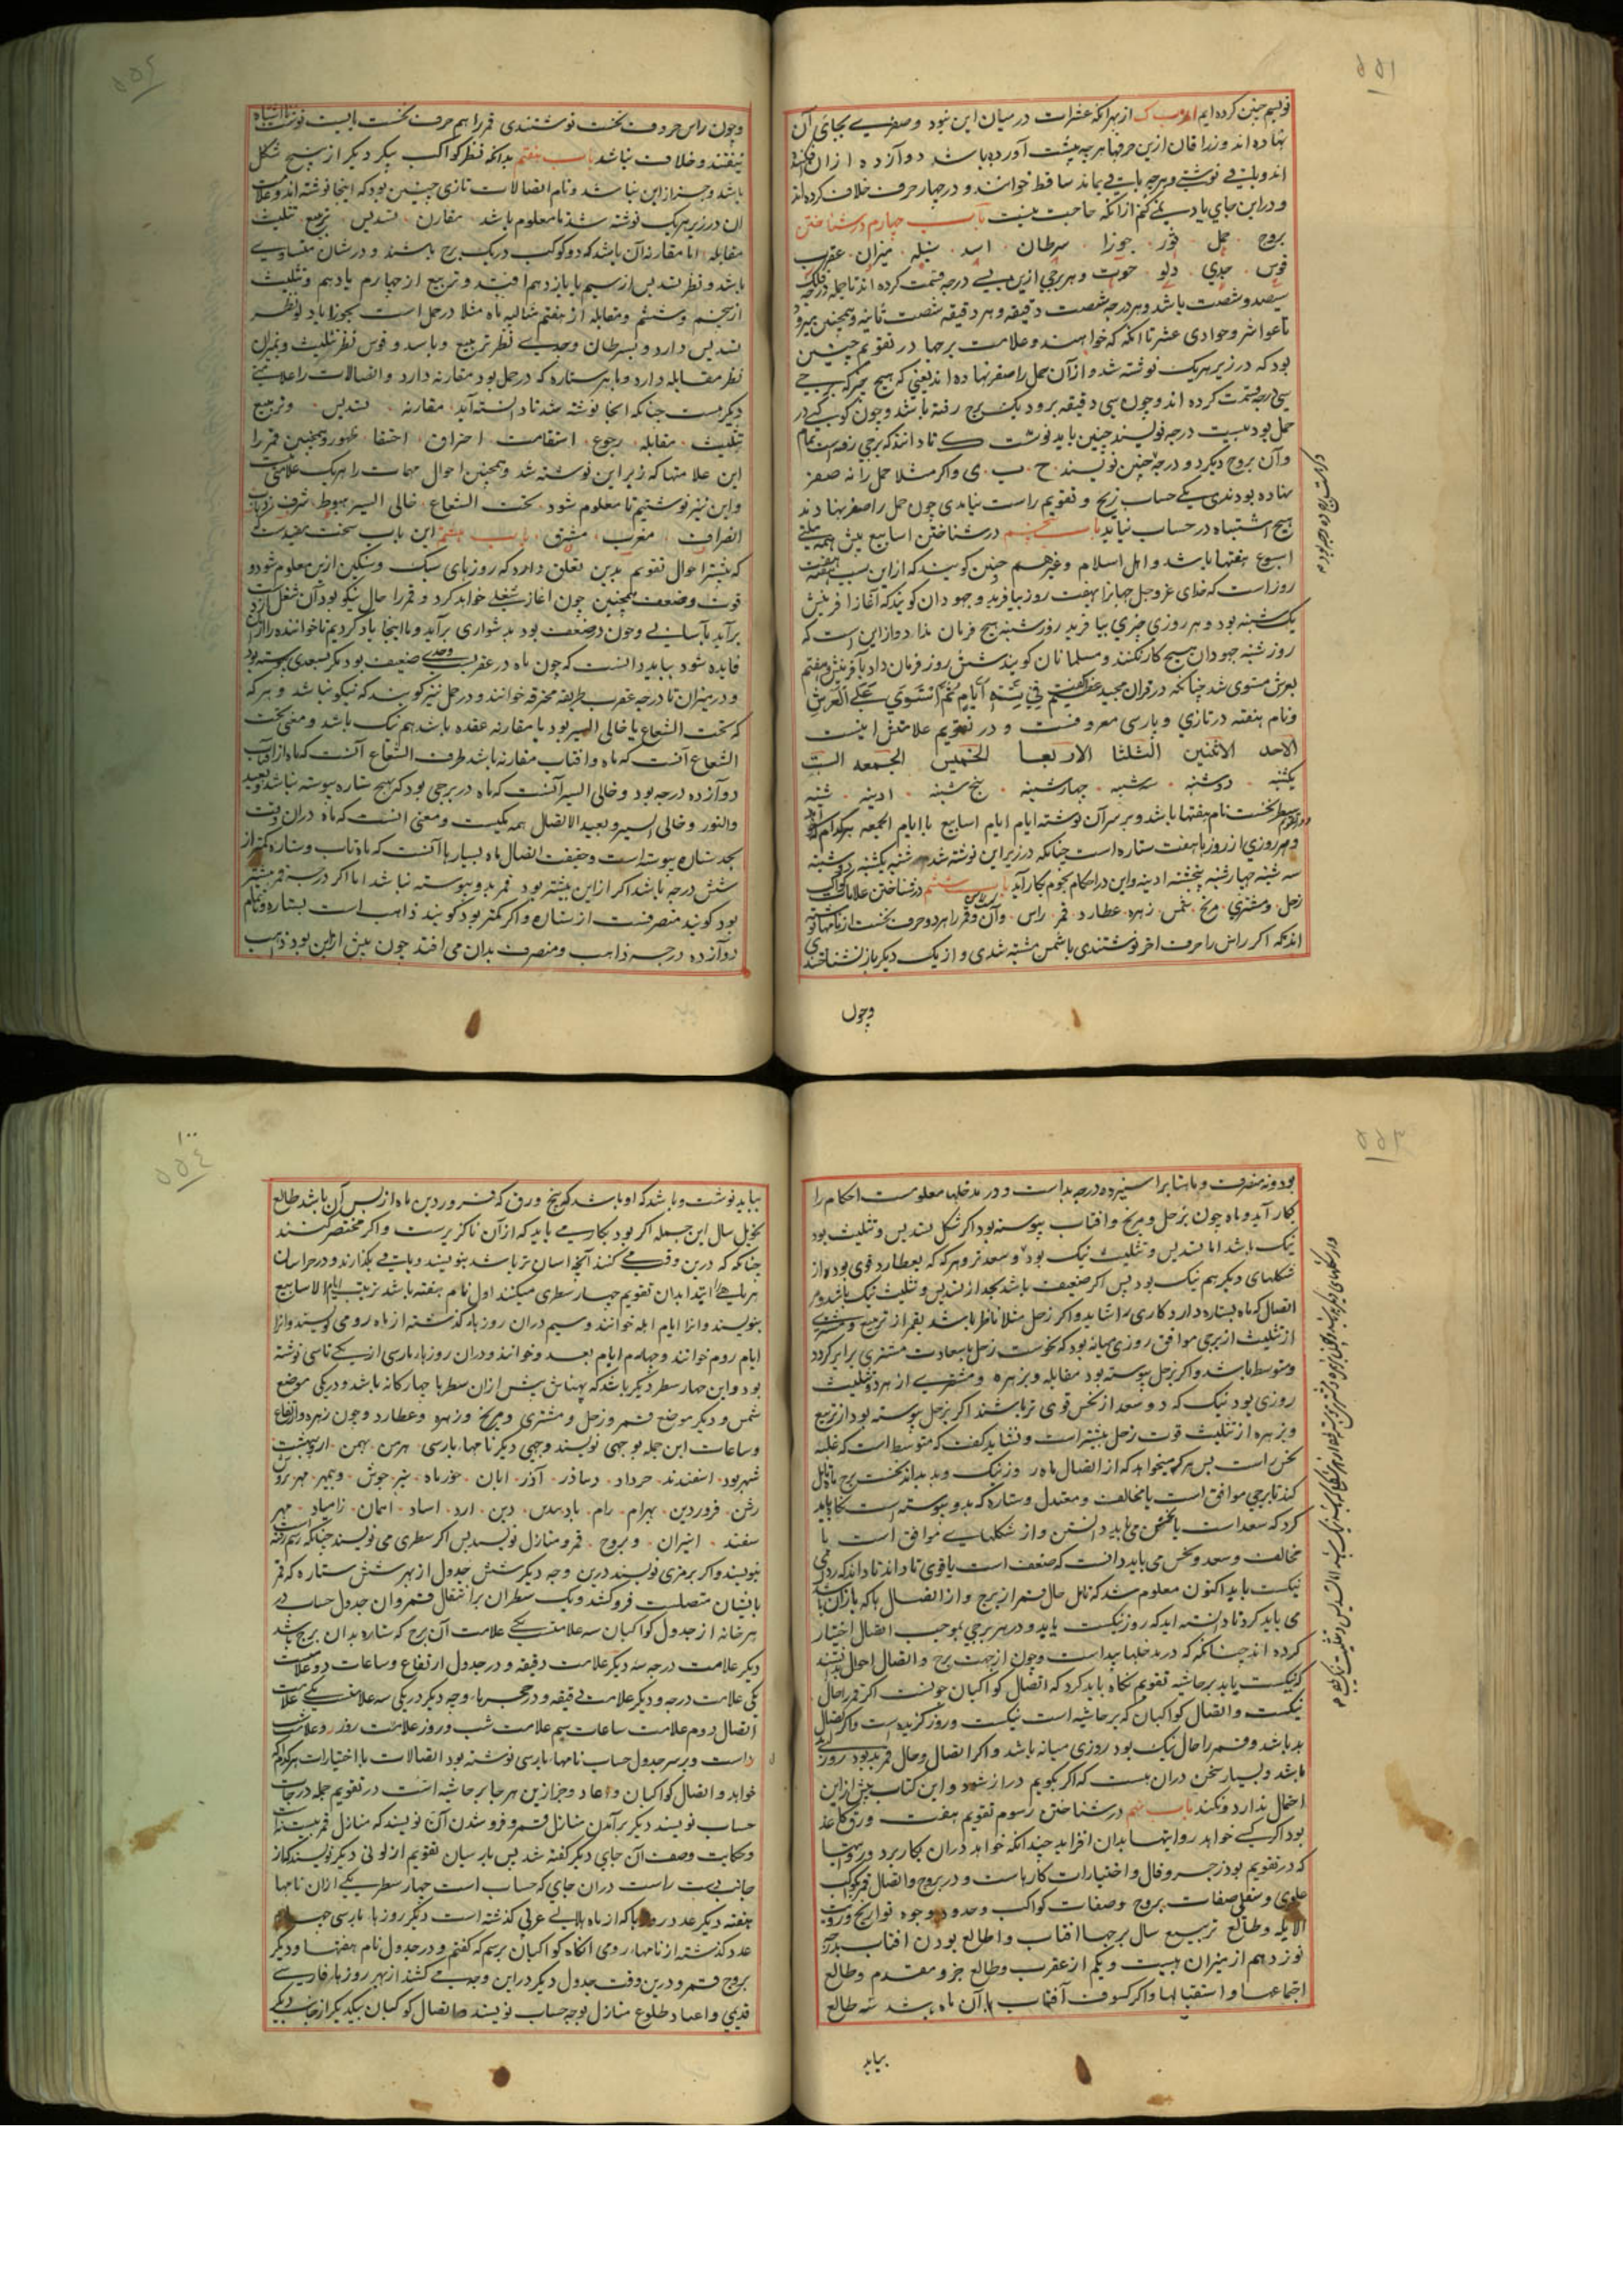 ۵۵۱
نویسم چنین کرده ایم از بهر آنکه عشرات در میان این نبود و صفری بجای آن
نهاده اند
و در این جای یاد می کنم از آنکه حاجت نیست باب چهارم در شناختن
بروج حمل ثور جوزا سرطان اسد سنبله میزان عقرب
قوس جدی دلو حوت و هر برجی ازین به سی درجه قسمت کرده اند تا جمله فلک
سیصد و شصت باشد و هر درجه شصت دقیقه و هر دقیقه شصت ثانیه و همچنین میرود
تا عواشر و حوادی عشر تا آنکه که خواهند و علامت برجها در تقویم چنین
بود که در زیر هر یک نوشته شد و از آن حمل را صفر نهاده اند یعنی که هیچ
سی درجه قسمت کرده اند و چون سی دقیقه برود یک برج رفته باشد و چون کوکبی در
حمل بود بیست درجه نویسند چنین باید نوشت ک تا دانند که برجی رفته است تمام
و آن بروج دیگر دو درجه چنین نویسند ح ب ی و اگر مثلا حمل را نه صفر
نهاده بودندی یکی حساب زیج و تقویم راست نیامدی چون حمل را صفر نهادند
هیچ اشتباه در حساب نیاید باب پنجم در شناختن اسابیع پیش همه ملتی
اسبوع هفتها باشد و اهل اسلام و غیر هم چنین گویند که از این سبب هفته هفت
روز است که خدای عز و جل جهانرا بهفت روز بیافرید و جهودان گویند که آغاز آفرینش
یکشنبه بود و هر روزی چیزی بیافرید روز شنبه هیچ فرمان نداد و از این است که
روز شنبه جهودان هیچ کار نکنند و مسلمانان گویند شش روز فرمان داد بآفرینش و هفتم
بعرش مستوی شد چنانکه در قرآن مجید فی ستة ایام ثم استوی علی العرش
و نام هفته در تازی و پارسی معروفست و در تقویم علامتش اینست
الاحد الاثنین الثلثا الاربعا الخمیس الجمعه السبت
یکشنبه دوشنبه سه شنبه چهارشنبه پنج شنبه ادینه شنبه
نخست نام هفتها باشد و بر سر آن نوشته ایام ایام اسابیع یا ایام الجمعه
و هر روزی از روزها هفت ستاره است چنانکه در زیر این نوشته شد شنبه یکشنبه دوشنبه
سه شنبه چهارشنبه پنجشنبه ادینه و این در احکام نجوم بکار آید باب ششم در شناختن علامات کواکب
زحل و مشتری مریخ شمس زهره عطارد قمر راس و آن و قمر را هر دو حرف نخست از نامها نوشته
اند که اگر راس را حرف اخر نوشتندی با شمس مشتبه شدی و از یک دیگر باز نشناختندی
وچون
۵۵۲
و چون راس حرف نخست نوشتندی قمر را هم حرف نخست بایست نوشت تا اشتباه
نیفتند و خلاف نباشد باب هفتم بدانکه نظر کواکب بیکدیگر از پنج شکل
باشد و جز از این نباشد و نام اتصالات تازی چنین بود که اینجا نوشته اند و علامت
ان در زیر هر یک نوشته شد تا معلوم باشد مقارن تسدیس تربیع تثلیث
مقابله اما مقارنه آن باشد که دو کوکب در یک برج باشند و درشان متساوی
باشد و نظر تسدیس از سیم یا یازدهم افتد و تربیع از چهارم یا دهم و تثلیث
از پنجم و نهم و مقابله از هفتم مثاله ماه مثلا در حمل است بجوزا یا دلو نظر
تسدیس دارد و بسرطان و جدی نظر تربیع و باسد و قوس نظر تثلیث و بمیزان
نظر مقابله دارد و با هر ستاره که در حمل بود مقارنه دارد و اتصالات را علامتی
دیگر هست چنانکه اینجا نوشته شد تا دانسته آید مقارنه تسدیس و تربیع
تثلیث مقابله رجوع استقامت احتراق اختفا ظهور و همچنین قمر را
این علامتها که زیر این نوشته شد و همچنین احوال مهمات را هر یک علامتی
و این نیز نوشتیم تا معلوم شود تحت الشعاع خالی السیر هبوط شرف
انصراف مغرب مشرق باب هشتم این باب سخت مفید است
که بیشتر احوال تقویم بدین تعلق دارد که روزهای سبک و سنگین ازین معلوم شود و
قوت و ضعف همچنین چون آغاز شغلی خواهد کرد و قمر را حال نیکو بود آن شغل
برآید بآسانی و چون در ضعف بود بدشواری برآید و ما اینجا یاد کردیم تا خواننده را از آن
فایده شود بباید دانست که چون ماه در عقرب و جدی ضعیف بود مگر بسعدی پیوسته بود
و در میزان تا درجه عقرب طریقه محترقه خوانند و در حمل نیز گویند که نیکو نباشد و هر که
که تحت الشعاع یا خالی السیر بود یا مقارنه عقده باشد هم نیک نباشد و معنی تحت
الشعاع آنست که ماه و آفتاب مقارنه باشد طرف الشعاع آنست که ماه از آفتاب
دوازده درجه بود و خالی السیر آنست که ماه در برجی بود که بهیچ ستاره پیوسته نباشد و بعید
والنور و خالی السیر و بعید الاتصال همه یکیست و معنی انست که ماه در آن وقت
بحد ستاره پیوسته است و حقیقت اتصال ماه بسیارها آنست که ماه تاب و ستاره کمتر از
شش درجه باشد اگر ازین بیشتر بود قمر بدو پیوسته نباشد اما اگر درجه قمر بیشتر
بود گویند منصرفست از ستاره و اگر کمتر بود گویند ذاهب است بستاره و تمام
دوازده درجه ذاهب و منصرف بدان می افتد چون بیش از این بود ذاهب
۵۵۳
بود و نه منصرف و ماه تا برابر استیزده درجه بداست و در مدخلها معلومست احکام را
بکار آید و ماه چون بزحل و مریخ و افتاب پیوسته بود اگر شکل تسدیس و تثلیث بود
نیک باشد اما تسدیس و تثلیث نیک بود و سعدتر و هر که که بعطارد قوی بود و از
شکلهای دیگر هم نیک بود پس اگر ضعیف باشد بجد از تسدیس و تثلیث نیک باشد و هر
اتصال که ماه بستاره دارد کاری را شاید و اگر زحل مثلا ناظر باشد بقمر از تربیع و مشتری
از تثلیث از برجی موافق روزی میانه بود که نحوست زحل با سعادت مشتری برابر گردد
و متوسط باشد و اگر بزحل پیوسته بود مقابله و بزهره و مشتری از هر دو تثلیث
روزی بود نیک که دو سعد از نحس قوی تر باشند اگر بزحل پیوسته بود از تربیع
و بزهره از تثلیث قوت زحل بیشتر است و نشاید گفت که متوسط است که غلبه
نحس است پس هر که میخواهد که از اتصال ماه روز نیک و بد بداند نخست برج
کند تا برجی موافق است یا مخالف و معتدل و ستاره که بدو پیوسته است نگاه باید
کرد که سعد است یا نحس می باید دانستن و از شکلهای موافق است یا
مخالف و سعد و نحس می باید دانست که ضعیف است یا قوی تا داند
نیکست یا بد اکنون معلوم شد که تامل حال قمر از برج و از اتصال
می باید کرد تا دانسته اید که روز نیکست یا بد و در هر برجی بموجب اتصال اختیار
کرده اند چنانکه که در مدخلها پیداست و چون از جهت برج و اتصال احوال
که نیکست یا بد بر حاشیه تقویم نگاه باید کرد که اتصال کواکبان چونست اگر قمر را حال
نیکست و اتصال کواکبان که بر حاشیه است نیکست و روز گزیده است و اگر اتصال
بد باشد و قمر را حال نیک بود روزی میانه باشد و اگر اتصال و حال قمر بد بود روز بد
باشد و بسیار سخن در آن هست که اگر بگویم دراز شود و این کتاب بیش ازین
احتمال ندارد و نکند باب نهم در شناختن رسوم تقویم هفت ورق کاغذ
بود اگر کسی خواهد روایتها بدان افزاید چندانکه خواهد در آن بکار برد
که در تقویم بود زجر و فال و اختیارات کارهاست و در بروج و اتصال قمر بکواکب
علوی و سفلی صفات بروج و صفات کواکب و حدود و وجوه تواریخ
و طالع تربیع سال برجها افتاب و اطالع بودن افتاب بدرجه
نوزدهم از میزان و بیست و یکم از عقرب و طالع جزو مقدم و طالع
اجتماعها و استقبالها و اگر کسوف آفتاب با آن ماه باشد سه طالع
بباید
۱۰۰
۵۵۴
بباید نوشت و باشد که او باشد که پنج ورق که فروردین ماه از پس آن باشد طالع
تحویل سال این جمله اگر بود بکار می باید که از آن ناگزیرست و اگر مختصر کنند
چنانکه که درین وقت می کنند آنچه اسان تر باشد بنویسند و باقی بگذارند و در خراسان
ابتدا بدان تقویم چهار سطری میکنند اول نام هفته باشد بترتیب ایام الاسابیع
بنویسند و انرا ایام ابله خوانند و سیم در آن روزها گذشته از ماه رومی نویسند و انرا
ایام روم خوانند و چهارم ایام بعد و خوانند و در آن روزها پارسی از یکی تا سی نوشته
بود و این چهار سطر دیگر باشد که پهناش بیش از آن سطرها چهارگانه باشد و در یکی موضع
شمس و دیگر موضع قمر و زحل و مشتری و مریخ و زهره و عطارد و چون زهره و ارتفاع
و ساعات این جمله بوجهی نویسند وجهی دیگر نامها پارسی هرمز بهمن اردیبهشت
شهریور اسفندند خرداد دماذر آذر ابان خورماه تیر جوش دیمهر مهر سروش
رشن فروردین بهرام رام باد دین ارد اشتاد اسمان زامیاد مهر
سفند انیران و بروج قمر و منازل نویسند پس اگر سطری می نویسند چنانکه رسم رفته است
بنویسند و اگر برمزی نویسند درین وجه دیگر شش جدول از بهر شش ستاره که قمر
بایشان متصلست فروکشند و یک سطر آن برا انتقال قمر و آن جدول حسابی
هر خانه از جدول کواکبان سه علامت یکی علامت آن برج که ستاره بدان برج باشد
دیگر علامت درجه سه دیگر علامت دقیقه و در جدول ارتفاع و ساعات دو علامت
یکی علامت درجه و دیگر علامت دقیقه و در وجه دیگر در یکی سه علامت یکی علامت
اتصال دوم علامت ساعات سیم علامت شب و روز علامت روز
و بر سر جدول حساب نامها پارسی نوشته بود اتصالات با اختیارات هر کدام که
خواهد و اتصال کواکبان و اعیاد و جز ازین هر جا بر حاشیه است در تقویم جمله درجات
حساب نویسند دیگر برآمدن منازل قمر و فروشدن آن نویسند که منازل قمر بیست
و حکایت وصف آن جای دیگر گفته شد پس پارسیان تقویم از لونی دیگر نویسند که از
جانب دست راست در آن جای که حساب است چهار سطر یکی از آن نامها
هفته دیگر عدد روزها که از ماه هلالی عربی گذشته است دیگر روزها پارسی
عدد گذشته از نامها رومی انگاه کواکبان برسم که گفتم و در جدول نام هفتها و دیگر
بروج قمر و درین وقت جدول دیگر در این وجه می کشند از بهر روزها فارسی
قدیم و اعیاد و طلوع منازل بوجه حساب نویسند و اتصال کواکبان بیکدیگر از جانب دیگر